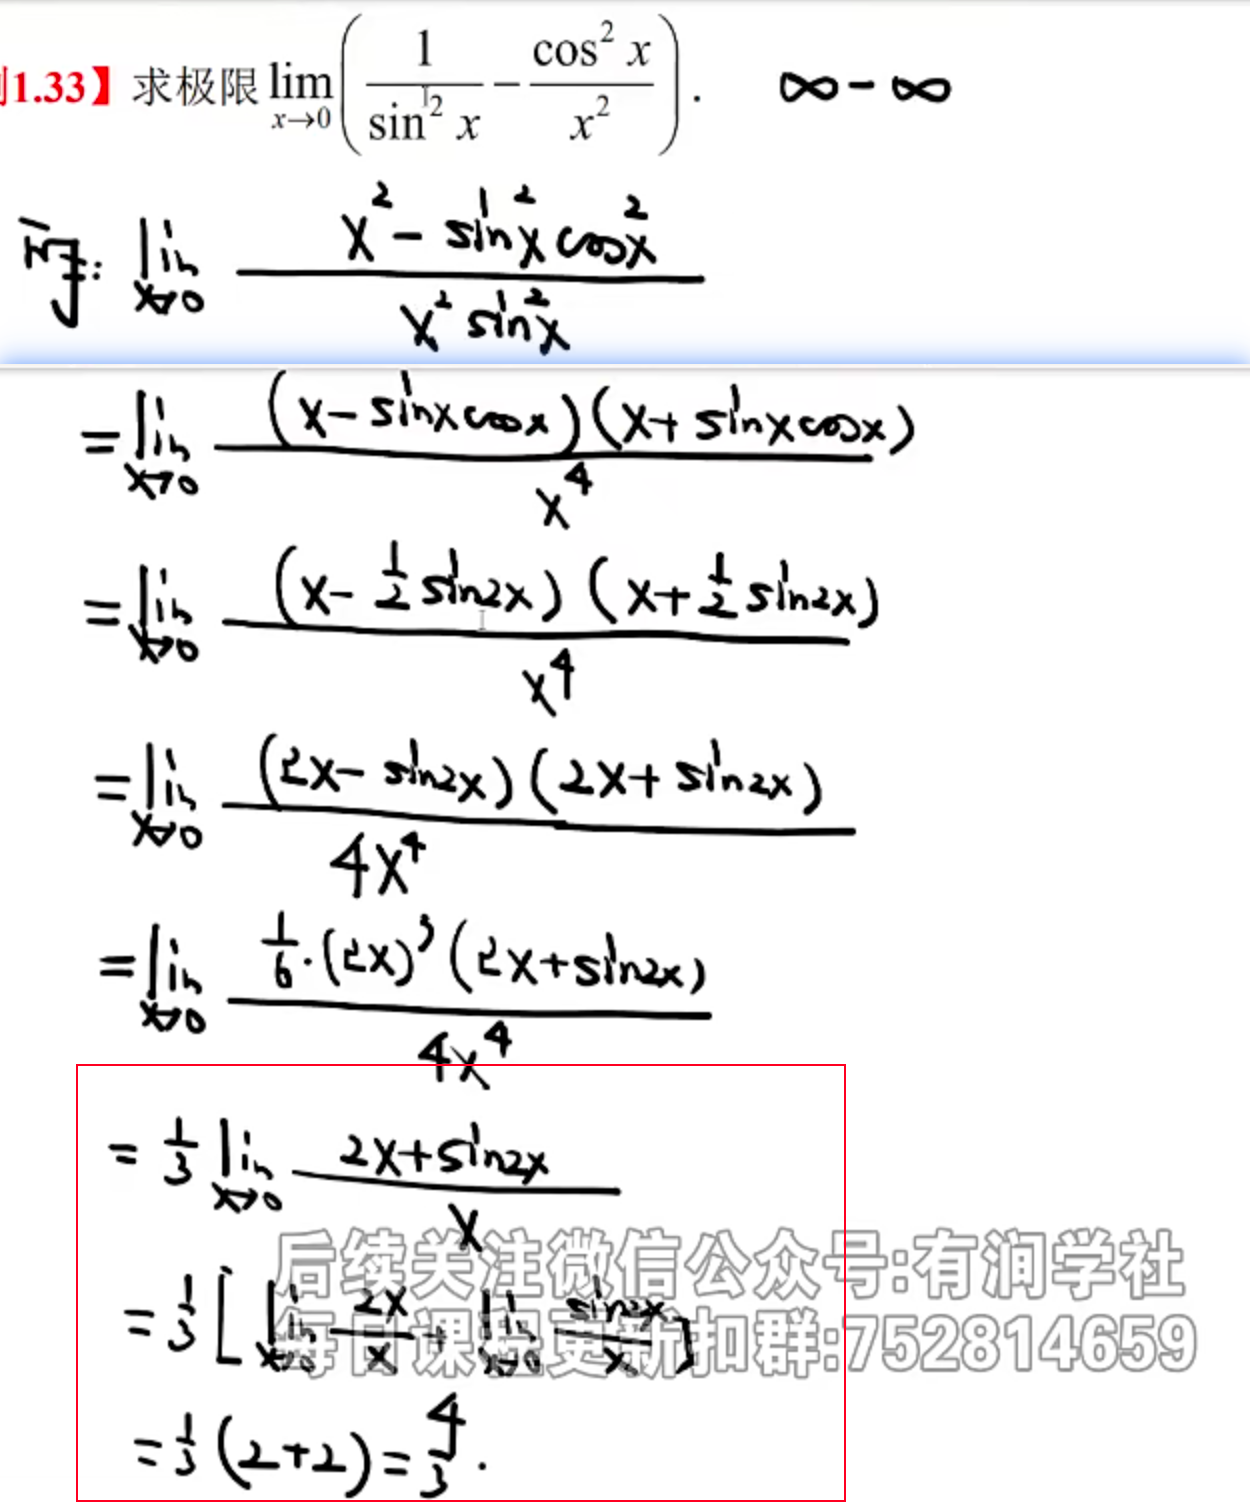 1.33】求极限 lim x→0 ( 1/sin² x − cos² x/x² ). ∞ − ∞
原: lim x→0 (x² − sin²x cos²x)/(x² sin²x)
= lim x→0 (x − sinx cosx)(x + sinx cosx)/x⁴
= lim x→0 (x − 1/2 sin2x)(x + 1/2 sin2x)/x⁴
= lim x→0 (2x − sin2x)(2x + sin2x)/4x⁴
= lim x→0 1/6·(2x)³(2x + sin2x)/4x⁴
= 1/3 lim x→0 (2x + sin2x)/x
后续关注微信公众号:有润学社
= 1/3 [ lim x→0 2x/x + lim x→0 sin2x/x ]
每日课程更新扣群:752814659
= 1/3 (2+2) = 4/3 .